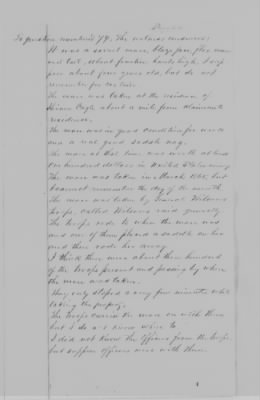 To question number 79. The witness answered:
It was a sorrel mare, blaze face, flax mane
and tail, about fourteen hands high, I sup
pose about four years old, but do not
remember for certain.
The mare was taken at the residence of
Hiram Cagle about a mile from claimants
residence.
The mare was in good condition for work
and a real good saddle nag.
The mare at that time was worth at least
one hundred dollars in United States money
The mare was taken in March 1865, but
I cannot remember the day of the month.
The mare was taken by General Wilsons
troops, called Wilsons raid generally.
The troops rode to where the mare was
and one of them placed a saddle on her
and then rode her away.
I think there were about three hundred
of the troops present and passing by when
the mare was taken.
They only stoped a very few minutes while
taking the property.
The troops carried the mare on with them
but I do not know where to
I do not know the officers from the troops
but suppose officers were with them.